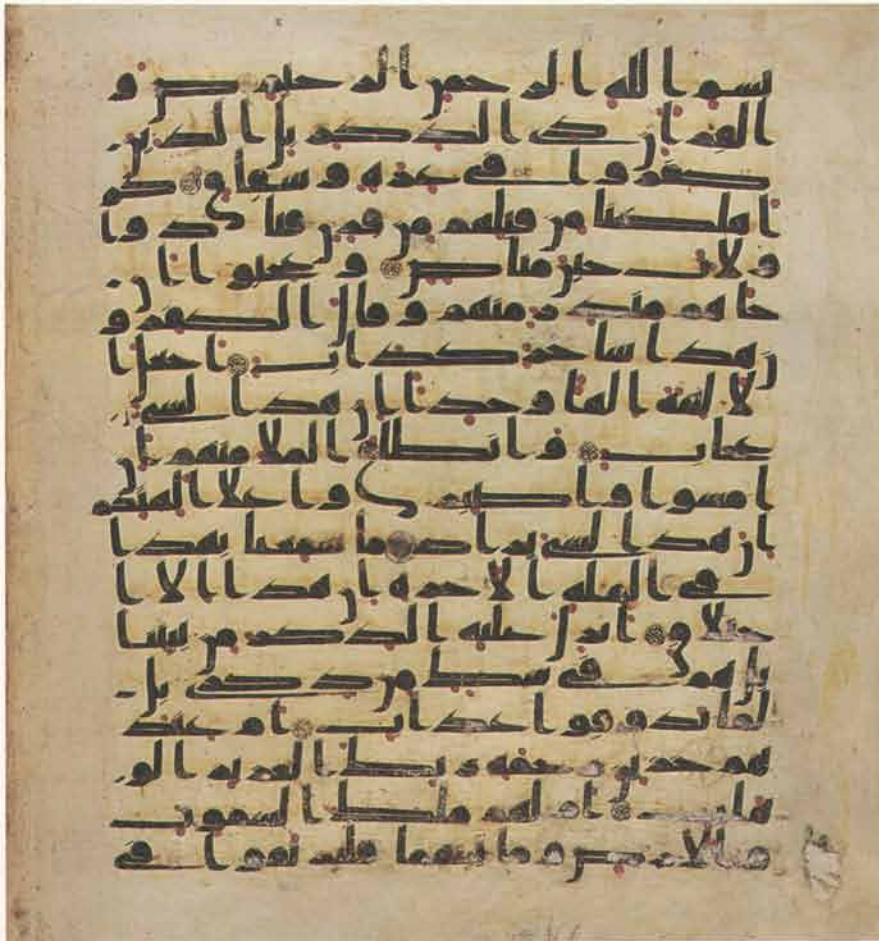 بسم الله الرحمن الرحيم ص و
القران ذي الذكر بل الذين
كفروا في عزة وشقاق كم
اهلكنا من قبلهم من قرن فنادوا
ولات حين مناص وعجبوا ان
جاهم منذر منهم وقال الكفرو
ن هذا ساحر كذاب اجعل ا
لالهة الها وحدا ان هذا لشي
عجاب وانطلق الملا منهم ان
امشوا واصبروا على الهتكم
ان هذا لشي يراد ما سمعنا بهذا
في الملة الاخرة ان هذا الا ا
ختلاق انزل عليه الذكر من بيننا
بل هم في شك من ذكري بل
لما يذوقوا عذاب ام عند
هم خزين رحمة ربك العزيز الو
هاب ام لهم ملك السموت
والارض وما بينهما فليرتقوا في